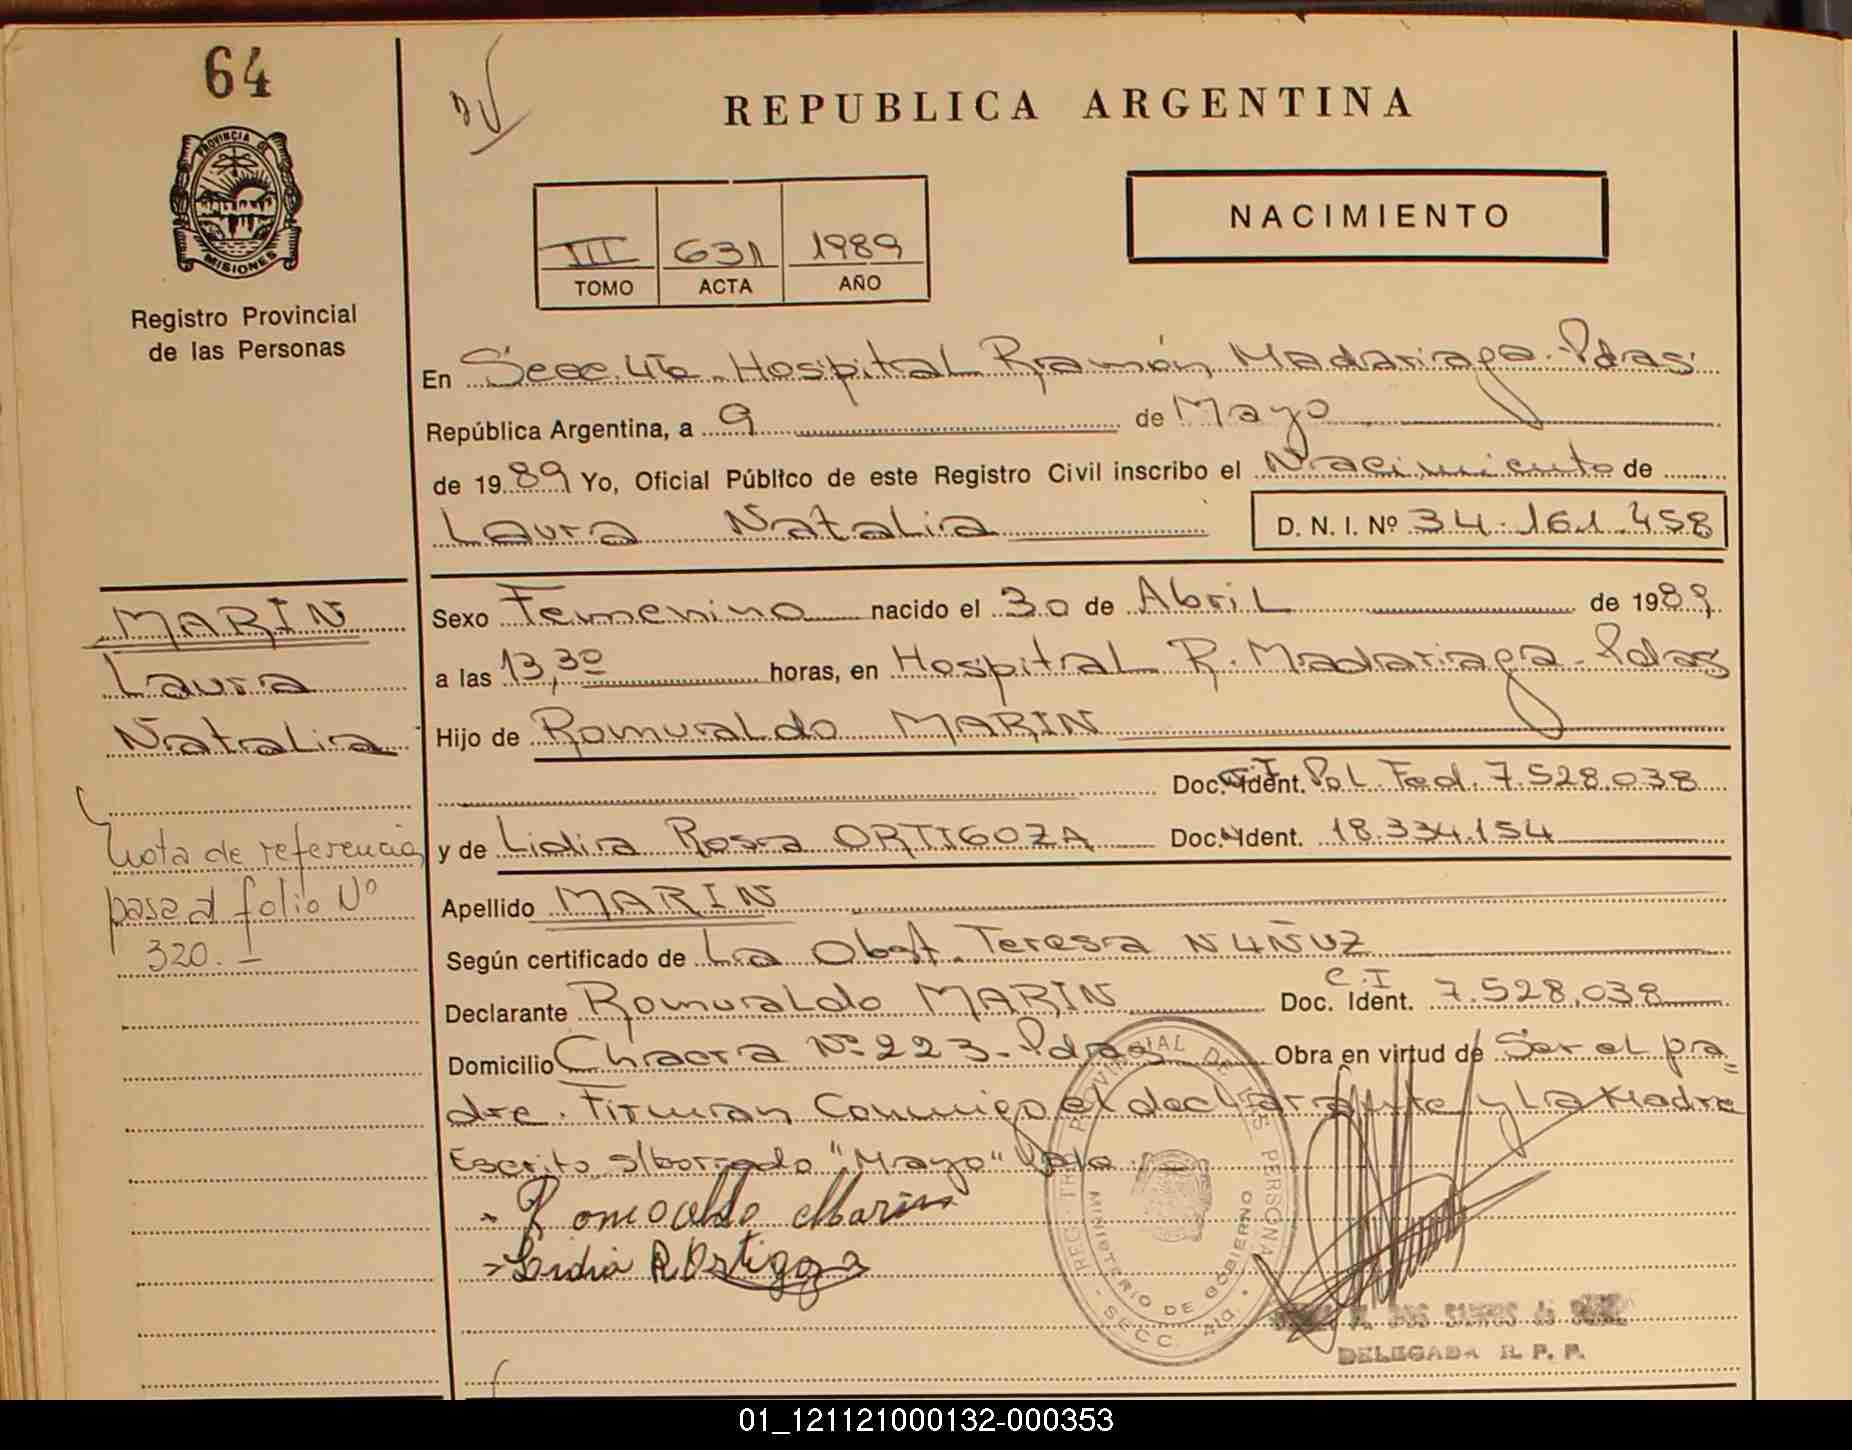 64
PROVINCIA DE
MISIONES
Registro Provincial
de las Personas
REPUBLICA ARGENTINA
NACIMIENTO
III 631 1989
TOMO ACTA AÑO
En Secc. 4ta. Hospital Ramón Madariaga. Pdas.
República Argentina, a 9 de Mayo
de 1989 Yo, Oficial Público de este Registro Civil inscribo el Nacimiento de
Laura Natalia D. N. I. Nº 34.161.458
Sexo Femenino nacido el 30 de Abril de 1989
a las 13,30 horas, en Hospital R. Madariaga - Pdas
Hijo de Romualdo MARIN
Doc. Ident. C.I. Pol. Fed. 7.528.038
y de Lidia Rosa ORTIGOZA Doc. Ident. 18.334.154
Apellido MARIN
Según certificado de La Obst. Teresa NUÑUZ
Declarante Romualdo MARIN Doc. Ident. C.I 7.528.038
Domicilio Chacra Nº 223 - Pdas Obra en virtud de Ser el pa=
dre. Firman Conmigo el declarante y La Madre
Escrito s/borrado "Mayo" Vale
Romualdo Marin
Lidia R Ortigoza
MARIN
Laura
Natalia
Nota de referencia
pasa al folio Nº
320. -
REG. PROVINCIAL DE LAS PERSONAS
MINISTERIO DE GOBIERNO
SECC. 4ta.
DOS SANTOS de
DELEGADA R. P. P.
01_121121000132-000353